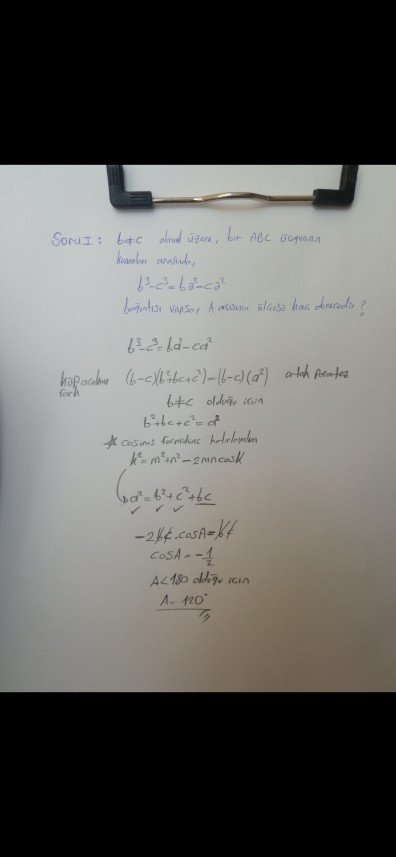 SORU I: b≠c olmak üzere, bir ABC üçgeninin
kenarları arasında,
b³-c³=ba²-ca²
bağıntısı varsa, A açısının ölçüsü kaç derecedir?
b³-c³=ba²-ca²
küp açılımı (b-c)(b²+bc+c²)=(b-c)(a²) ortak parantez
fark
b≠c olduğu için
b²+bc+c²=a²
* cosinüs formülünü hatırlayalım
k²=m²+n²-2mncosK
a²=b²+c²+bc
-2bc.cosA=bc
cosA=-1/2
A<180 olduğu için
A=120°